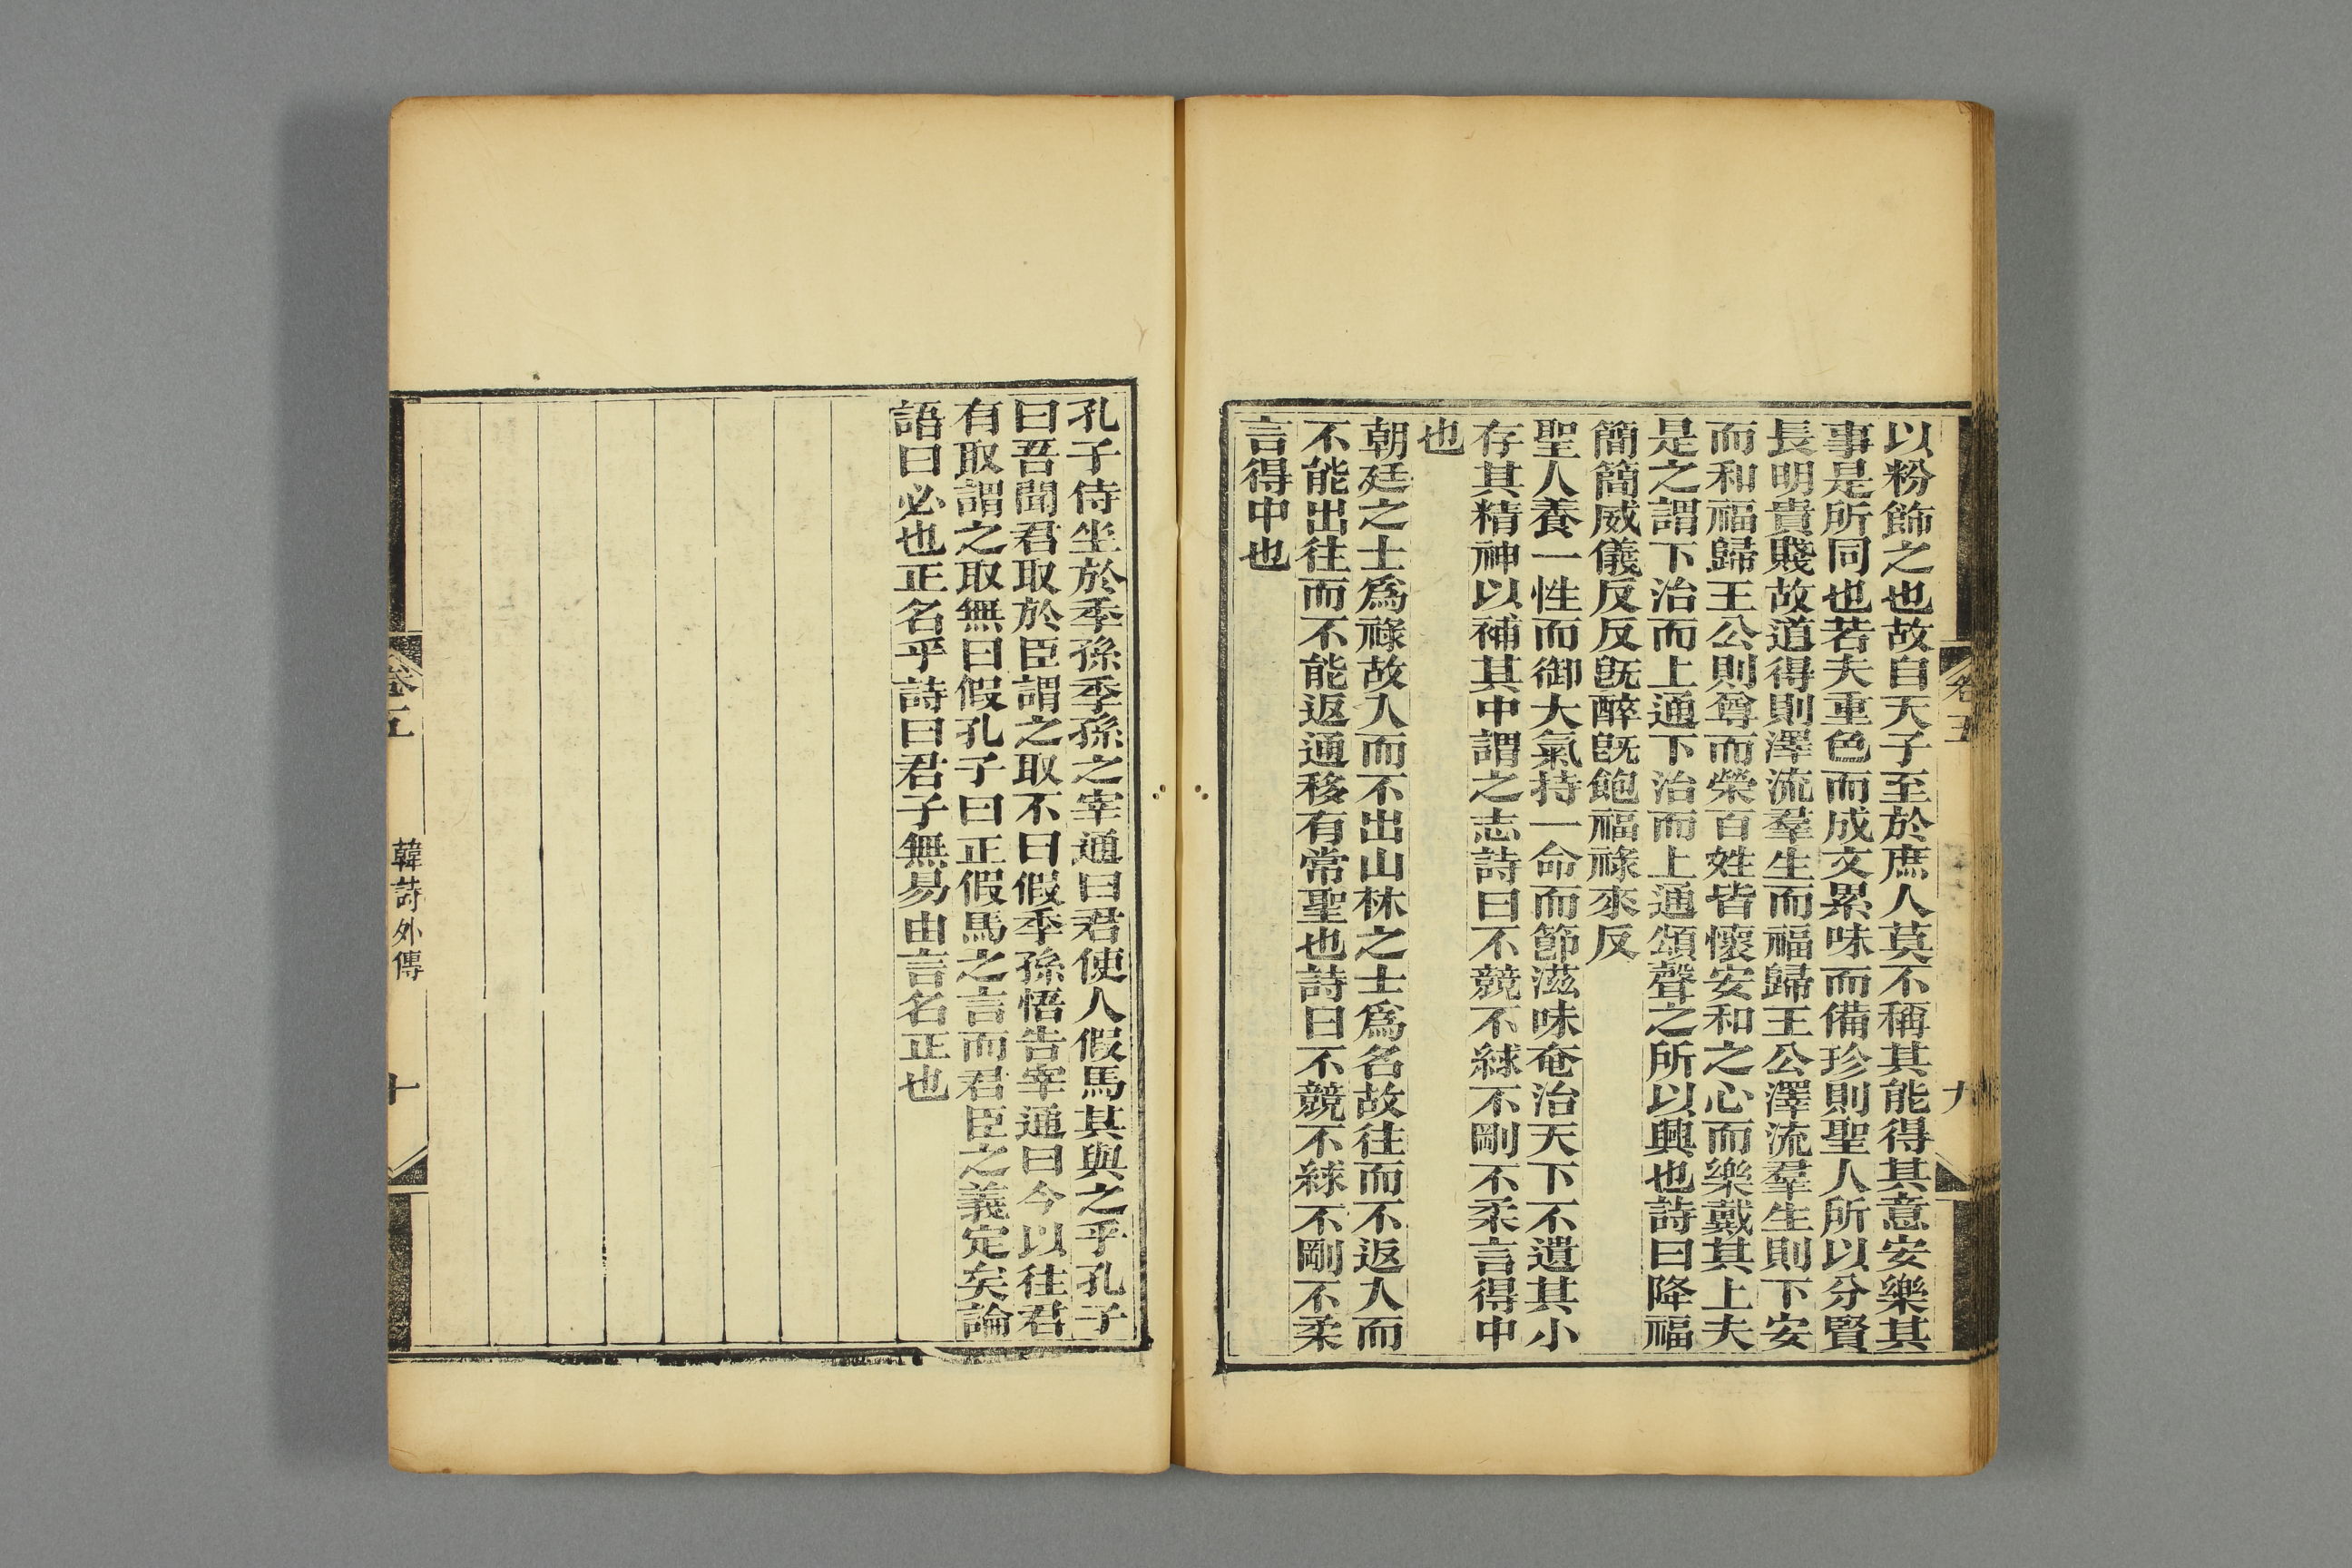 以粉飾之也故自天子至於庶人莫不稱其能得其意安樂其
事是所同也若夫重色而成文累味而備珍則聖人所以分賢
長明貴賤故道得則澤流羣生而福歸王公澤流羣生則下安
而和福歸王公則尊而榮百姓皆懷安和之心而樂戴其上夫
是之謂下治而上通下治而上通頌聲之所以興也詩曰降福
簡簡威儀反反旣醉旣飽福祿來反
聖人養一性而御大氣持一命而節滋味奄治天下不遺其小
存其精神以補其中謂之志詩曰不競不絿不剛不柔言得中
也
朝廷之士爲祿故入而不出山林之士爲名故往而不返入而
不能出往而不能返通移有常聖也詩曰不競不絿不剛不柔
言得中也
卷五
九
孔子侍坐於季孫季孫之宰通曰君使人假馬其與之乎孔子
曰吾聞君取於臣謂之取不曰假季孫悟告宰通曰今以往君
有取謂之取無曰假孔子曰正假馬之言而君臣之義定矣論
語曰必也正名乎詩曰君子無易由言名正也
卷五
韓詩外傳
十